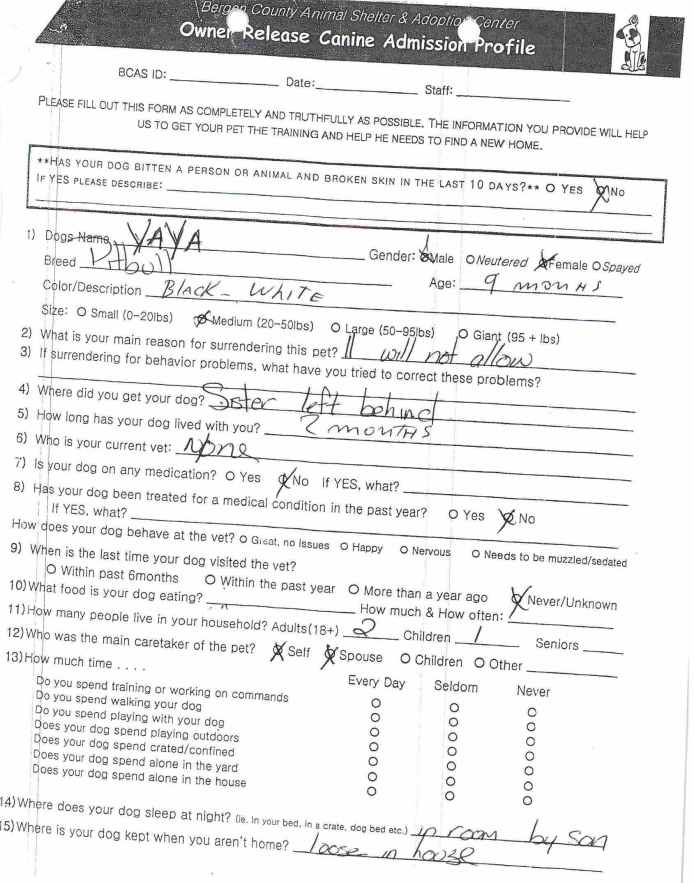 Bergen County Animal Shelter & Adoption Center
Owner Release Canine Admission Profile
BCAS ID: Date: Staff:
PLEASE FILL OUT THIS FORM AS COMPLETELY AND TRUTHFULLY AS POSSIBLE. THE INFORMATION YOU PROVIDE WILL HELP
US TO GET YOUR PET THE TRAINING AND HELP HE NEEDS TO FIND A NEW HOME.
**HAS YOUR DOG BITTEN A PERSON OR ANIMAL AND BROKEN SKIN IN THE LAST 10 DAYS?** O YES O NO
IF YES PLEASE DESCRIBE:
1) Dogs Name YAYA Gender: O Male O Neutered O Female O Spayed
Breed Pitbull Age: 9 months
Color/Description Black - White
Size: O Small (0-20lbs) O Medium (20-50lbs) O Large (50-95lbs) O Giant (95 + lbs)
2) What is your main reason for surrendering this pet? ll will not allow
3) If surrendering for behavior problems, what have you tried to correct these problems?
4) Where did you get your dog? Sister left behind
5) How long has your dog lived with you? 2 months
6) Who is your current vet: None
7) Is your dog on any medication? O Yes O No If YES, what?
8) Has your dog been treated for a medical condition in the past year? O Yes O No
If YES, what?
How does your dog behave at the vet? O Great, no Issues O Happy O Nervous O Needs to be muzzled/sedated
9) When is the last time your dog visited the vet?
O Within past 6months O Within the past year O More than a year ago O Never/Unknown
10) What food is your dog eating? How much & How often:
11) How many people live in your household? Adults(18+) 2 Children 1 Seniors
12) Who was the main caretaker of the pet? O Self O Spouse O Children O Other
13) How much time . . . . Every Day Seldom Never
Do you spend training or working on commands O O O
Do you spend walking your dog O O O
Do you spend playing with your dog O O O
Does your dog spend playing outdoors O O O
Does your dog spend crated/confined O O O
Does your dog spend alone in the yard O O O
Does your dog spend alone in the house O O O
14) Where does your dog sleep at night? (ie. in your bed, in a crate, dog bed etc.) in room by son
15) Where is your dog kept when you aren't home? loose in house